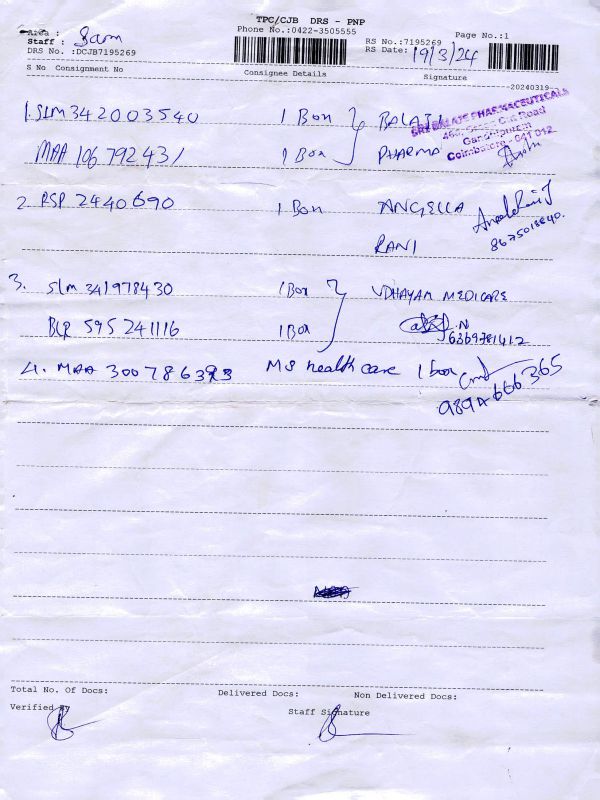 TPC/CJB DRS - PNP
Area :
Phone No.:0422-3505555
Page No.:1
Staff : Sam
RS No.:7195269
DRS No.:DCJB7195269
RS Date: 19/3/24
S No Consignment No Consignee Details Signature
20240319
1. SLM 342003540 1 Box BALAJI
SRI BALAJI PHARMACEUTICALS
Cut Road
Gandhipuram
Coimbatore - 641 012
MAA 106792431 1 Box PHARMA
2. PSP 2440690 1 Box ANGELLA
RANI
8675018640.
3. Slm 341978430 1 Box UDHAYAM MEDICARE
BLR 595241116 1 Box
.N
6369781412
4. MAA 300786393 MS health care 1 box
9894666365
Total No. Of Docs: Delivered Docs: Non Delivered Docs:
Verified By Staff Signature